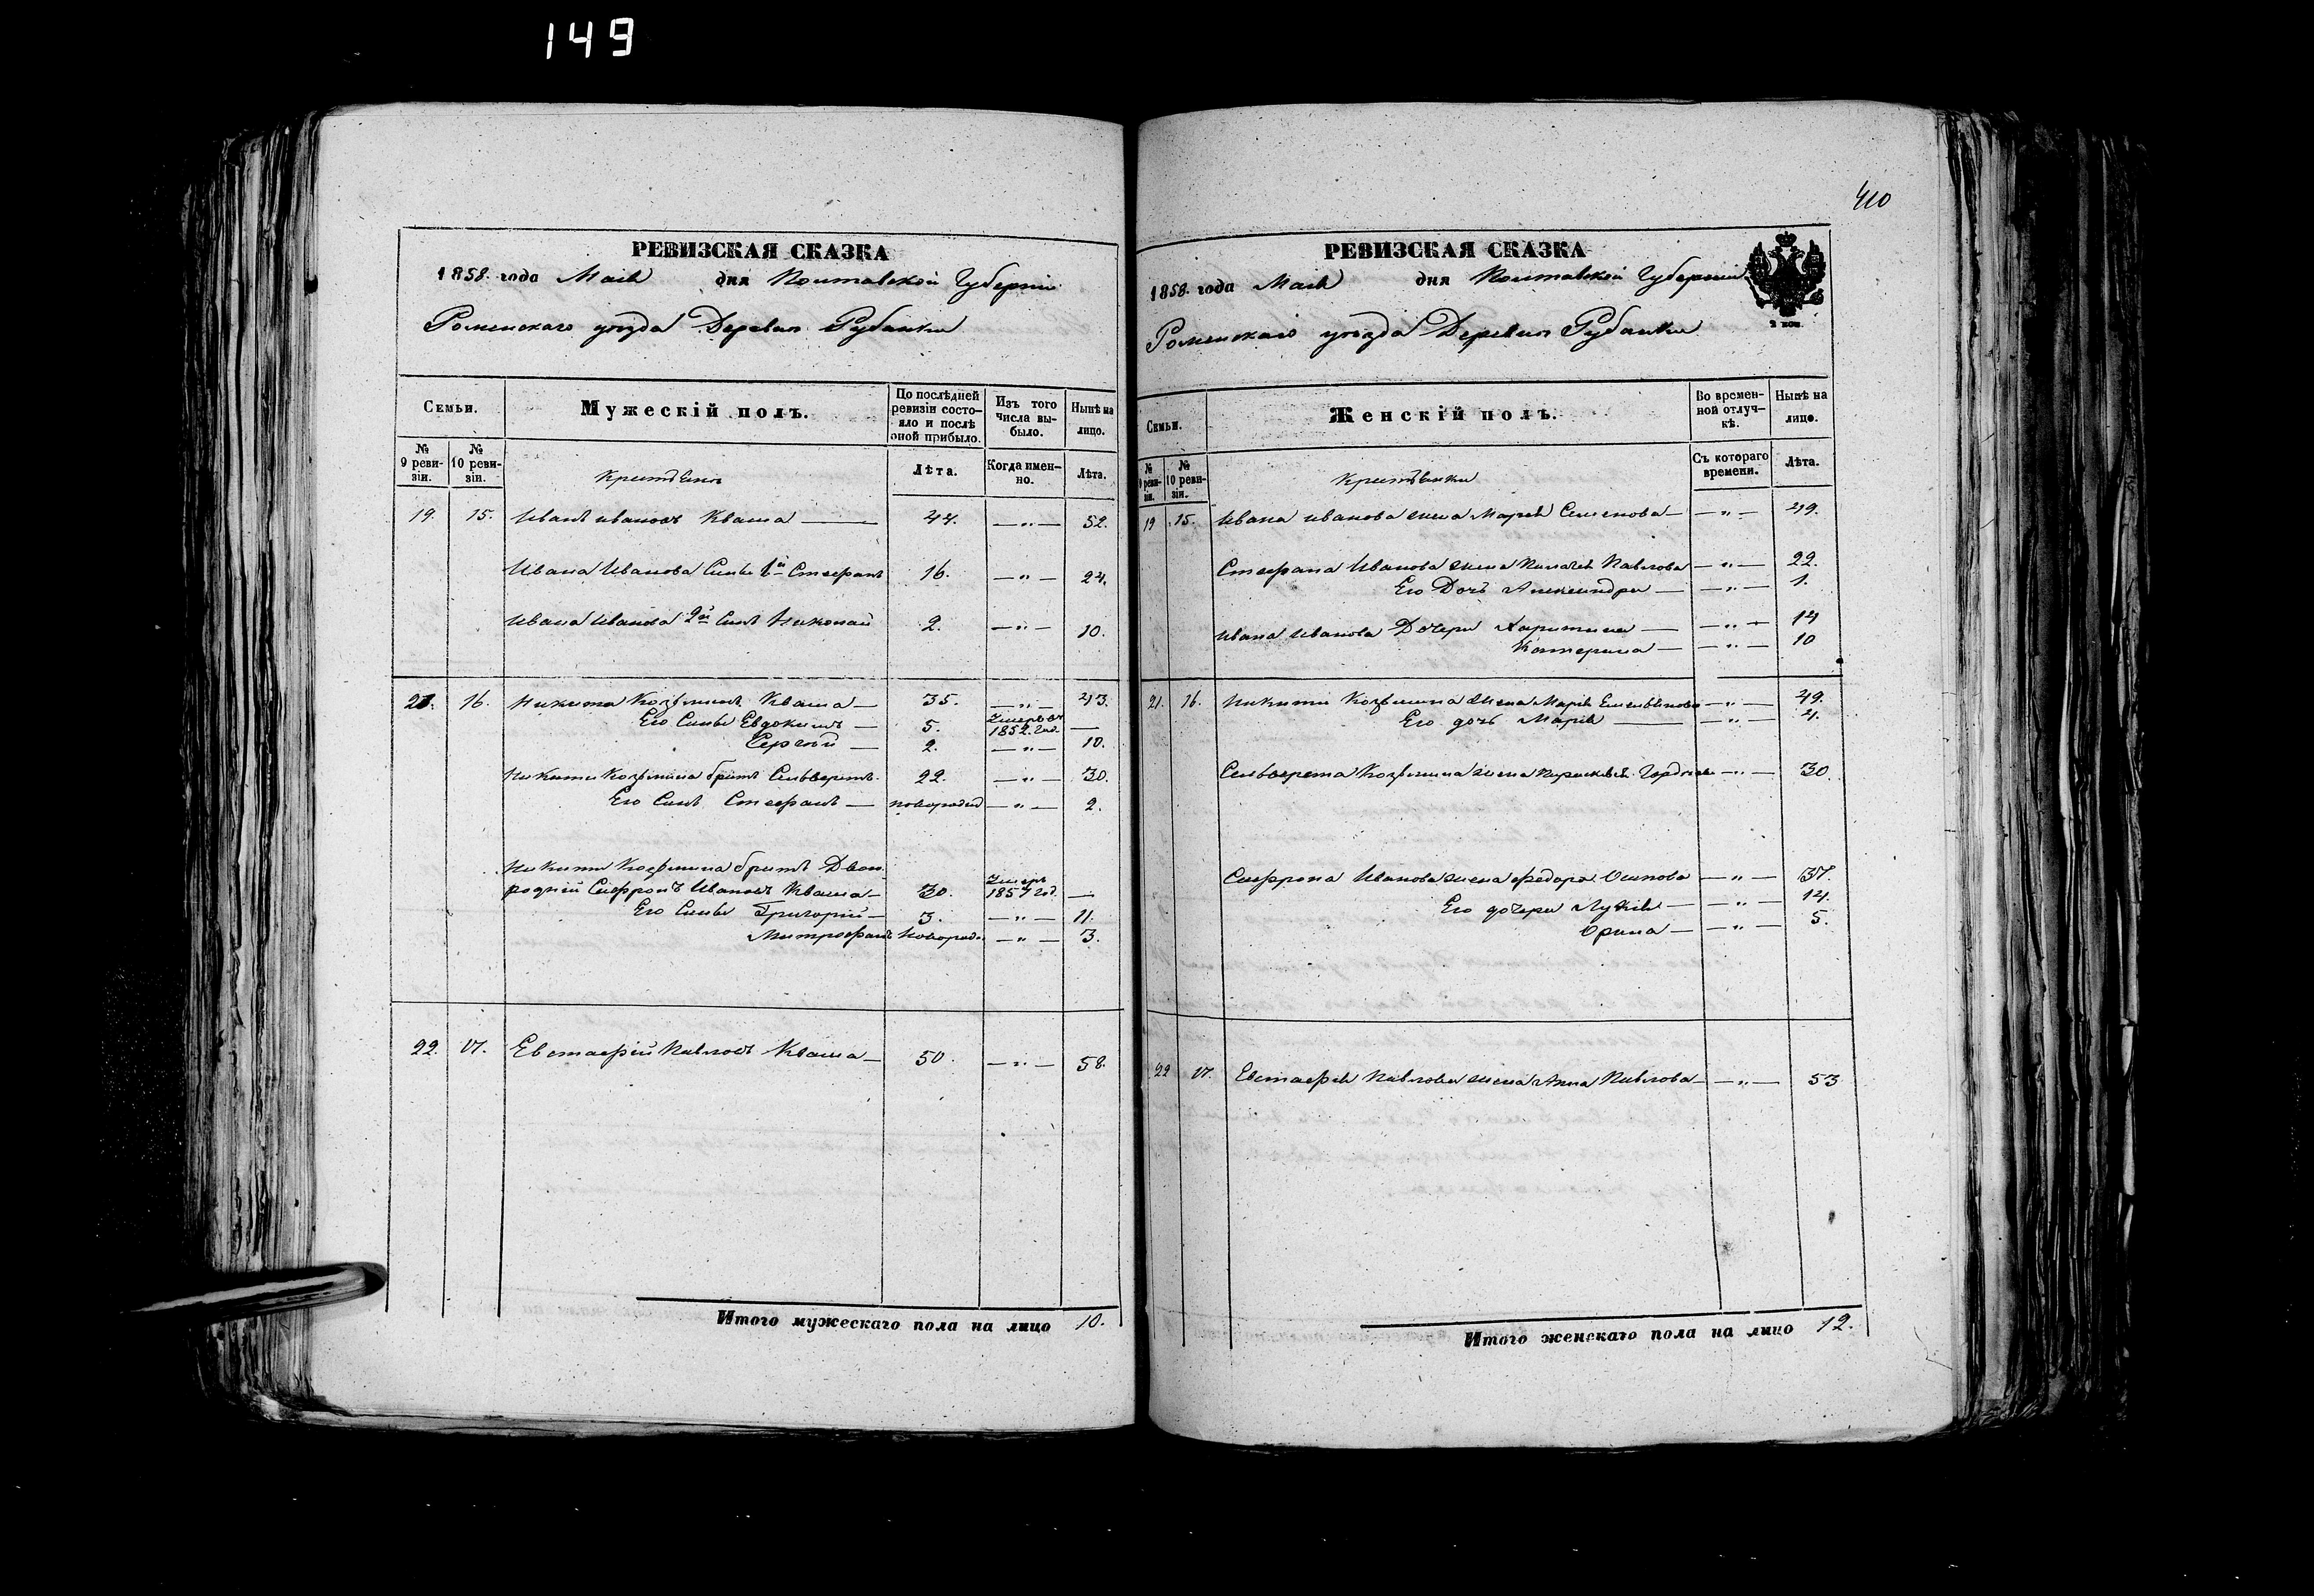 149
410
РЕВИЗСКАЯ СКАЗКА
1858. года Мая дня Полтавской Губерніи
Роменскаго уѣзда Деревни Рубанки
Семьи.
Мужескій полъ.
По послѣдней ревизіи состояло и послѣ оной прибыло.
Изъ того числа выбыло.
Нынѣ на лицо.
№ 9 ревизіи.
№ 10 ревизіи.
Лѣта.
Когда именно.
Лѣта.
19. 15. Иванъ Ивановъ Кваша — 44. — „ — 52.
Ивана Иванова Сыны 1й Стефанъ 16. — „ — 24.
Ивана Иванова 2й Сынъ Николай 2. — „ — 10.
21. 16. Никита Козьминъ Кваша — 35. — „ — 43.
Его Сыны Евдокимъ — 5. Умеръ въ 1852. год. —
Сергѣй — 2. — „ — 10.
Никиты Козьмина братъ Сильверстъ. 22. — „ — 30.
Его Сынъ Стефанъ — новорожд — „ — 2.
Никиты Козьмина братъ Двою
родній Сафронъ Ивановъ Кваша — 30. Умеръ 1857 год. —
Его Сыны Григорій — 3. — „ — 11.
Митрофанъ новорож. — „ — 3.
22. 17. Евстафій Павловъ Кваша — 50. — „ — 58.
Итого мужескаго пола на лицо 10.
РЕВИЗСКАЯ СКАЗКА
1858. года Мая дня Полтавской Губерніи
2 коп.
Роменскаго уѣзда Деревни Рубанки
Семьи.
Женскій полъ.
Во временной отлучкѣ.
Нынѣ на лицо.
№ 9 ревизіи.
№ 10 ревизіи.
Съ котораго времени.
Лѣта.
19 15. Ивана Иванова жена Марья Семенова — — „ — 49.
Стефана Иванова жена Павлова — — „ — 22.
Его Дочь Александра — — „ — 1.
Ивана Иванова Дочери Харитина — — „ — 14
Катерина — — „ — 10
21. 16. Никиты Козьмина жена Марія Емельянова — „ — 49.
Его дочь Марія — — „ — 4.
Сильверста Козьмина жена Параскевія — „ — 30.
Сафрона Иванова жена Федора Осипова — „ — 37.
Его дочери Лукія — — „ — 14.
Орина — — „ — 5.
22 17. Евстафія Павлова жена Анна Павлова — — „ — 53
Итого женскаго пола на лицо 12.